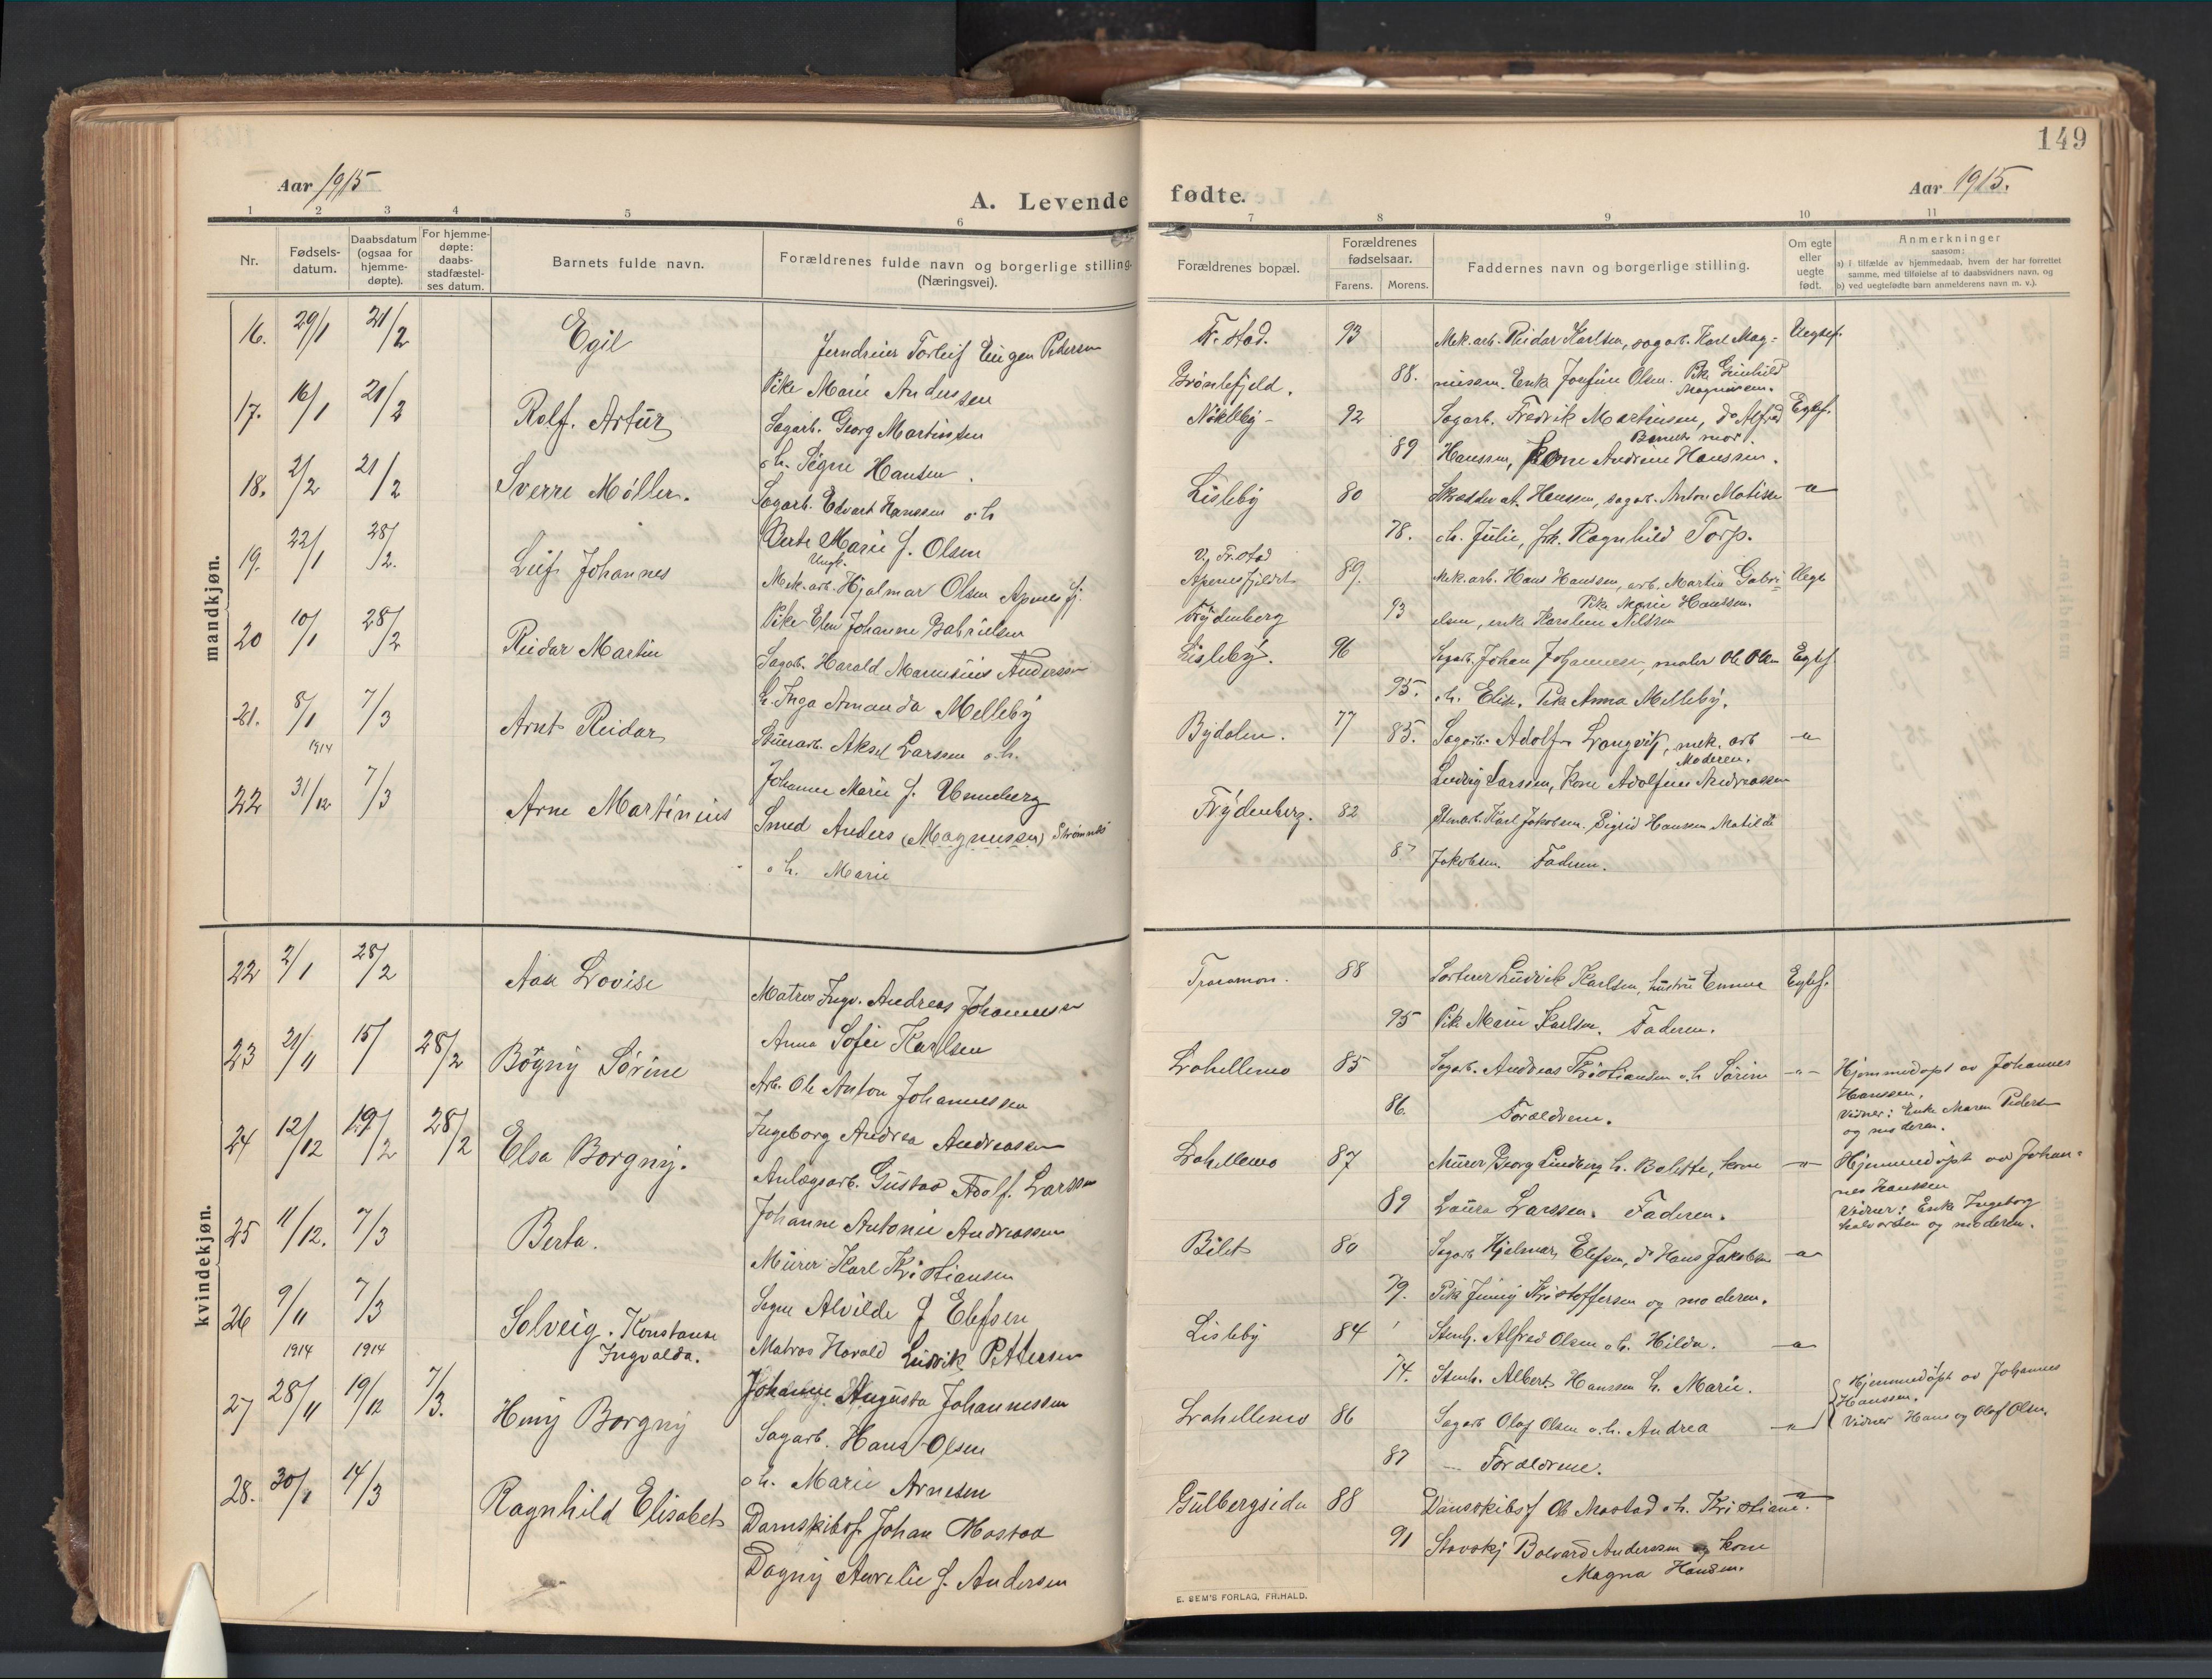 149
Aar 1915
A. Levende fødte.
Aar 1915.
1 2 3 4 5 6 7 8 9 10 11
Nr.
Fødsels-
datum.
Daabsdatum
(ogsaa for
hjemme-
døpte).
For hjemme-
døpte:
daabs-
stadfæstel-
ses datum.
Barnets fulde navn.
Forældrenes fulde navn og borgerlige stilling.
(Næringsvei).
Forældrenes bopæl.
Forældrenes
fødselsaar.
Farens. Morens.
Faddernes navn og borgerlige stilling.
Om egte
eller
uegte
født.
Anmerkninger
saasom:
a) i tilfælde av hjemmedaab, hvem der har forrettet
samme, med tilføielse af to daabsvidners navn, og
b) ved uegtefødte barn anmelderens navn m. v.).
mandkjøn.
16. 29/1 21/2 Egil
Jerndreier Torleif Eugen Pedersen
Pike Marie Anderssen
Fr.stad. 93
Grønlifjeld. 88.
Mek.arb. Reidar Karlsen, sagarb. Karl Mag-
nussen. Enk Josefine Olsen. Pik Gunhild
Magnussen.
Uegtef.
17. 16/1 21/2 Rolf. Artur
Sagarb. Georg Martinsen
o h. Signe Hansen.
Nøkleby - 92
89
Sagarb. Fredrik Martinsen, do Alfred
Barnets mor.
Hanssen, Kone Andrine Hanssen.
Egtef.
18. 2/2 21/2 Sverre Møller.
Sagarb. Edvart Hanssen o h
Berte Marie f. Olsen
Lisleby 80
78.
Skrædder A. Hanssen, sagarb. Anton Matisen
o h. Julie, frk. Ragnhild Torp.
-"-
19. 22/1 28/2. Leif Johannes
Ungk.
Mek.arb. Hjalmar Olsen Apenesfj.
Pike Elen Johanne Gabrielsen
V. Fr.stad
Apenesfjeldet 89.
Frydenberg 93
Mek.arb. Hans Hanssen, arb. Martin Gabri-
Pike Marie Hanssen.
elsen, enke Karoline Nilssen
Uegte
20 10/1 28/2 Reidar Martin
Sagarb. Harald Marinius Anderssen
h. Inga Amanda Melleby
Lisleby. 96
95.
Sagarb. Johan Johannessen, maler Ole Olsen
o h. Elise. Pike Anna Melleby.
Egtef.
21. 8/1 7/3 Arnt Reidar
Stuerarb. Aksel Larssen o h.
Johanne Marie f. Unneberg
Bydalen. 77 85.
Sagarb. Adolf Langvik, mek. arb
Moderen.
Ludvig Larssen, Kone Adolfine Andreassen
-"-
1914
22 31/12 7/3 Arne Martinius
Smed Anders (Magnussen) Strømnes
o h. Marie
Frydenberg. 82
87
Stenarb. Karl Jakobsen. Sigrid Hansen Matilde
Jakobsen. Faderen.
kvindekjøn.
22 2/1 28/2 Aase Lovise
Matros Ingv. Andreas Johannessen
Anna Sofie Karlsen
Traramon. 88
95
Sorterer Ludvik Karlsen, hustru Emma
Pike Marie Karlsen. Faderen.
Egtef.
23 21/11 15/ 28/2 Bøgny Sørine
Arb. Ole Anton Johannessen
Ingeborg Andrea Andreassen
Lahellemo 85
86.
Sagarb. Andreas Kristiansen o h Sørine
Forældrene.
-"-
Hjemmedøpt av Johannes
Hanssen,
Vidner: Enke Maren Pedersen
og moderen.
24 12/12 19/2 28/2 Elsa Borgny.
Anlægsarb. Gustav Adolf. Larssen
Johanne Antonie Andreassen
Lahellemo 87
89
Murer Georg Lindberg h. Bolette, kone
Laura Larssen. Faderen.
-"-
Hjemmedøpt av Johan-
nes Hanssen
Vidner: Enke Ingeborg
Halvorsen og moderen.
25 11/12. 7/3 Berta.
Murer Karl Kristiansen
Signe Alvilde f Elefsen
Bilet 80
79.
Sagarb Hjalmar Elefsen, do Hans Jakobsen
Pike Jenny Kristoffersen og moderen.
-"-
26 9/11 7/3 Solveig. Konstanse
Ingvalda.
Matros Harald Ludvik Pettersen
Johanne Augusta Johannessen
Lisleby 84
74.
Stenh. Alfred Olsen o h. Hilda.
Stenh. Albert Hanssen h. Marie.
-"-
1914 1914
27 28/11 19/12 7/3. Heny Borgny
Sagarb. Hans Olsen
o h. Marie Arnesen
Lahellemo 86
87
Sagarb Olaf Olsen o.h. Andrea
- Forældrene.
-"-
Hjemmedøpt av Johannes
Hanssen.
Vidner Hans og Olaf Olsen.
28. 30/1 14/3 Ragnhild Elisabet
Damskibsf. Johan Mostad
Dagny Aurelie f. Andersen
Gulbergsiden 88
91
Damskibsf Ole Mostad o h. Kristiane.
Stavskj Bolvard Anderssen og kone
Magna Hansen.
-"-
E. SEM'S FORLAG, FR.HALD.